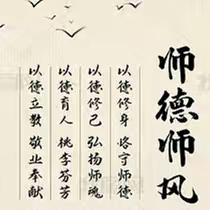 师德师风
以德修身 恪守师德
以德修己 弘扬师魂
以德育人 桃李芬芳
以德立教 敬业奉献